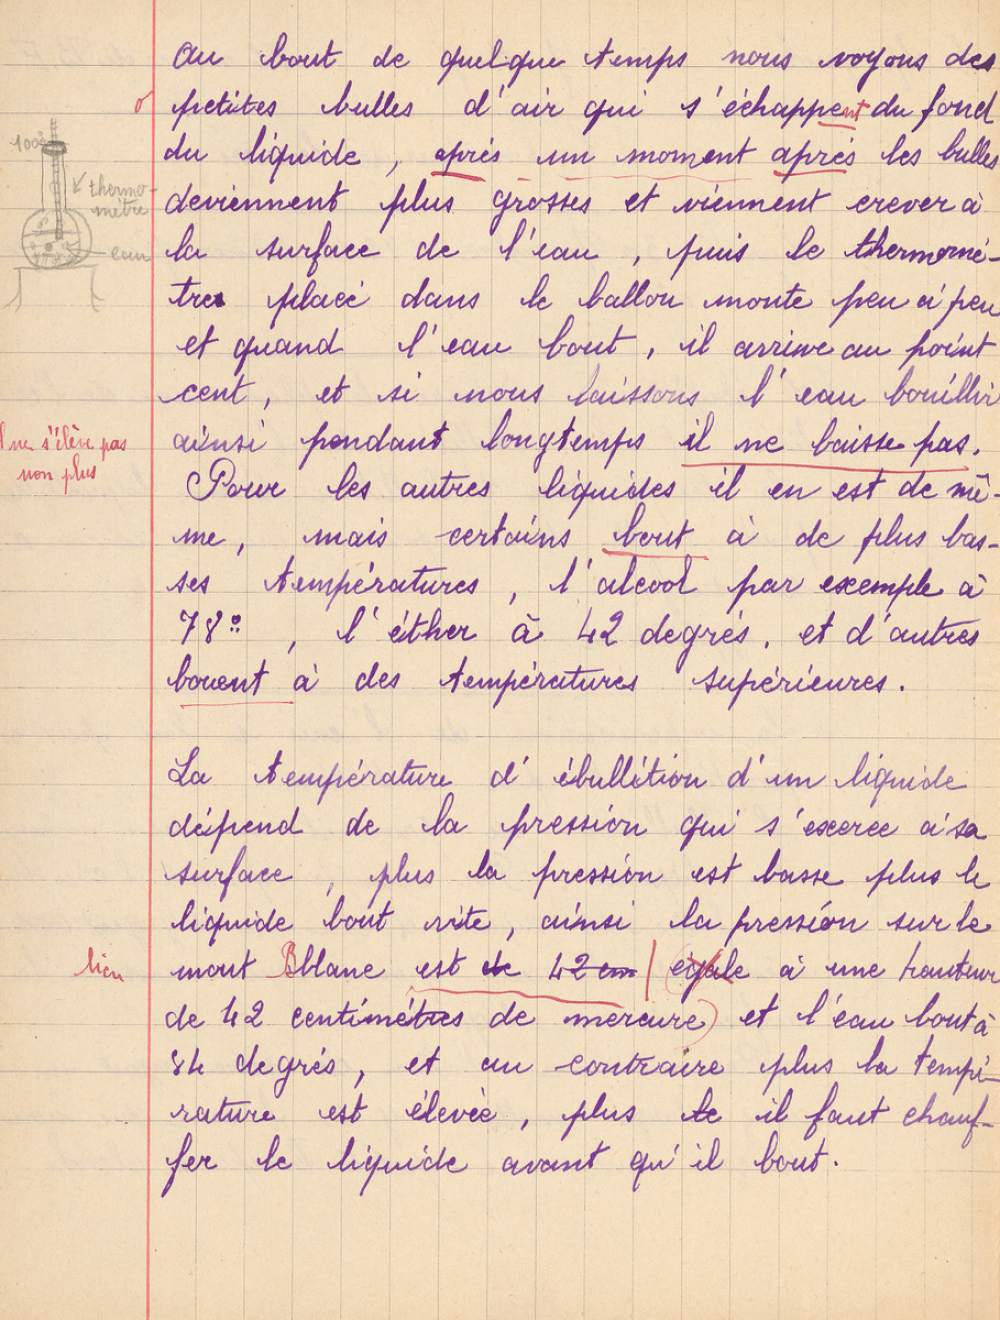 Au bout de quelque temps nous voyons des
petites bulles d'air qui s'échappent du fond
du liquide, après un moment après les bulles
100°
thermo-
mètre
eau
deviennent plus grosses et viennent crever à
la surface de l'eau, puis le thermomè-
tre placé dans le ballon monte peu à peu
et quand l'eau bout, il arrive au point
cent, et si nous laissons l'eau bouillir
ainsi pendant longtemps il ne baisse pas.
Il ne s'élève pas
non plus
Pour les autres liquides il en est de mê-
me, mais certains bout à de plus bas-
ses températures, l'alcool par exemple à
78°, l'éther à 42 degrés, et d'autres
bouent à des températures supérieures.
La température d'ébullition d'un liquide
dépend de la pression qui s'exerce à sa
surface, plus la pression est basse plus le
liquide bout vite, ainsi la pression sur le
lieu
mont Bblanc est de 42 cm égale à une hauteur
de 42 centimètres de mercure et l'eau bout à
84 degrés, et au contraire plus la tempé-
rature est élevée, plus le il faut chauf-
fer le liquide avant qu'il bout.